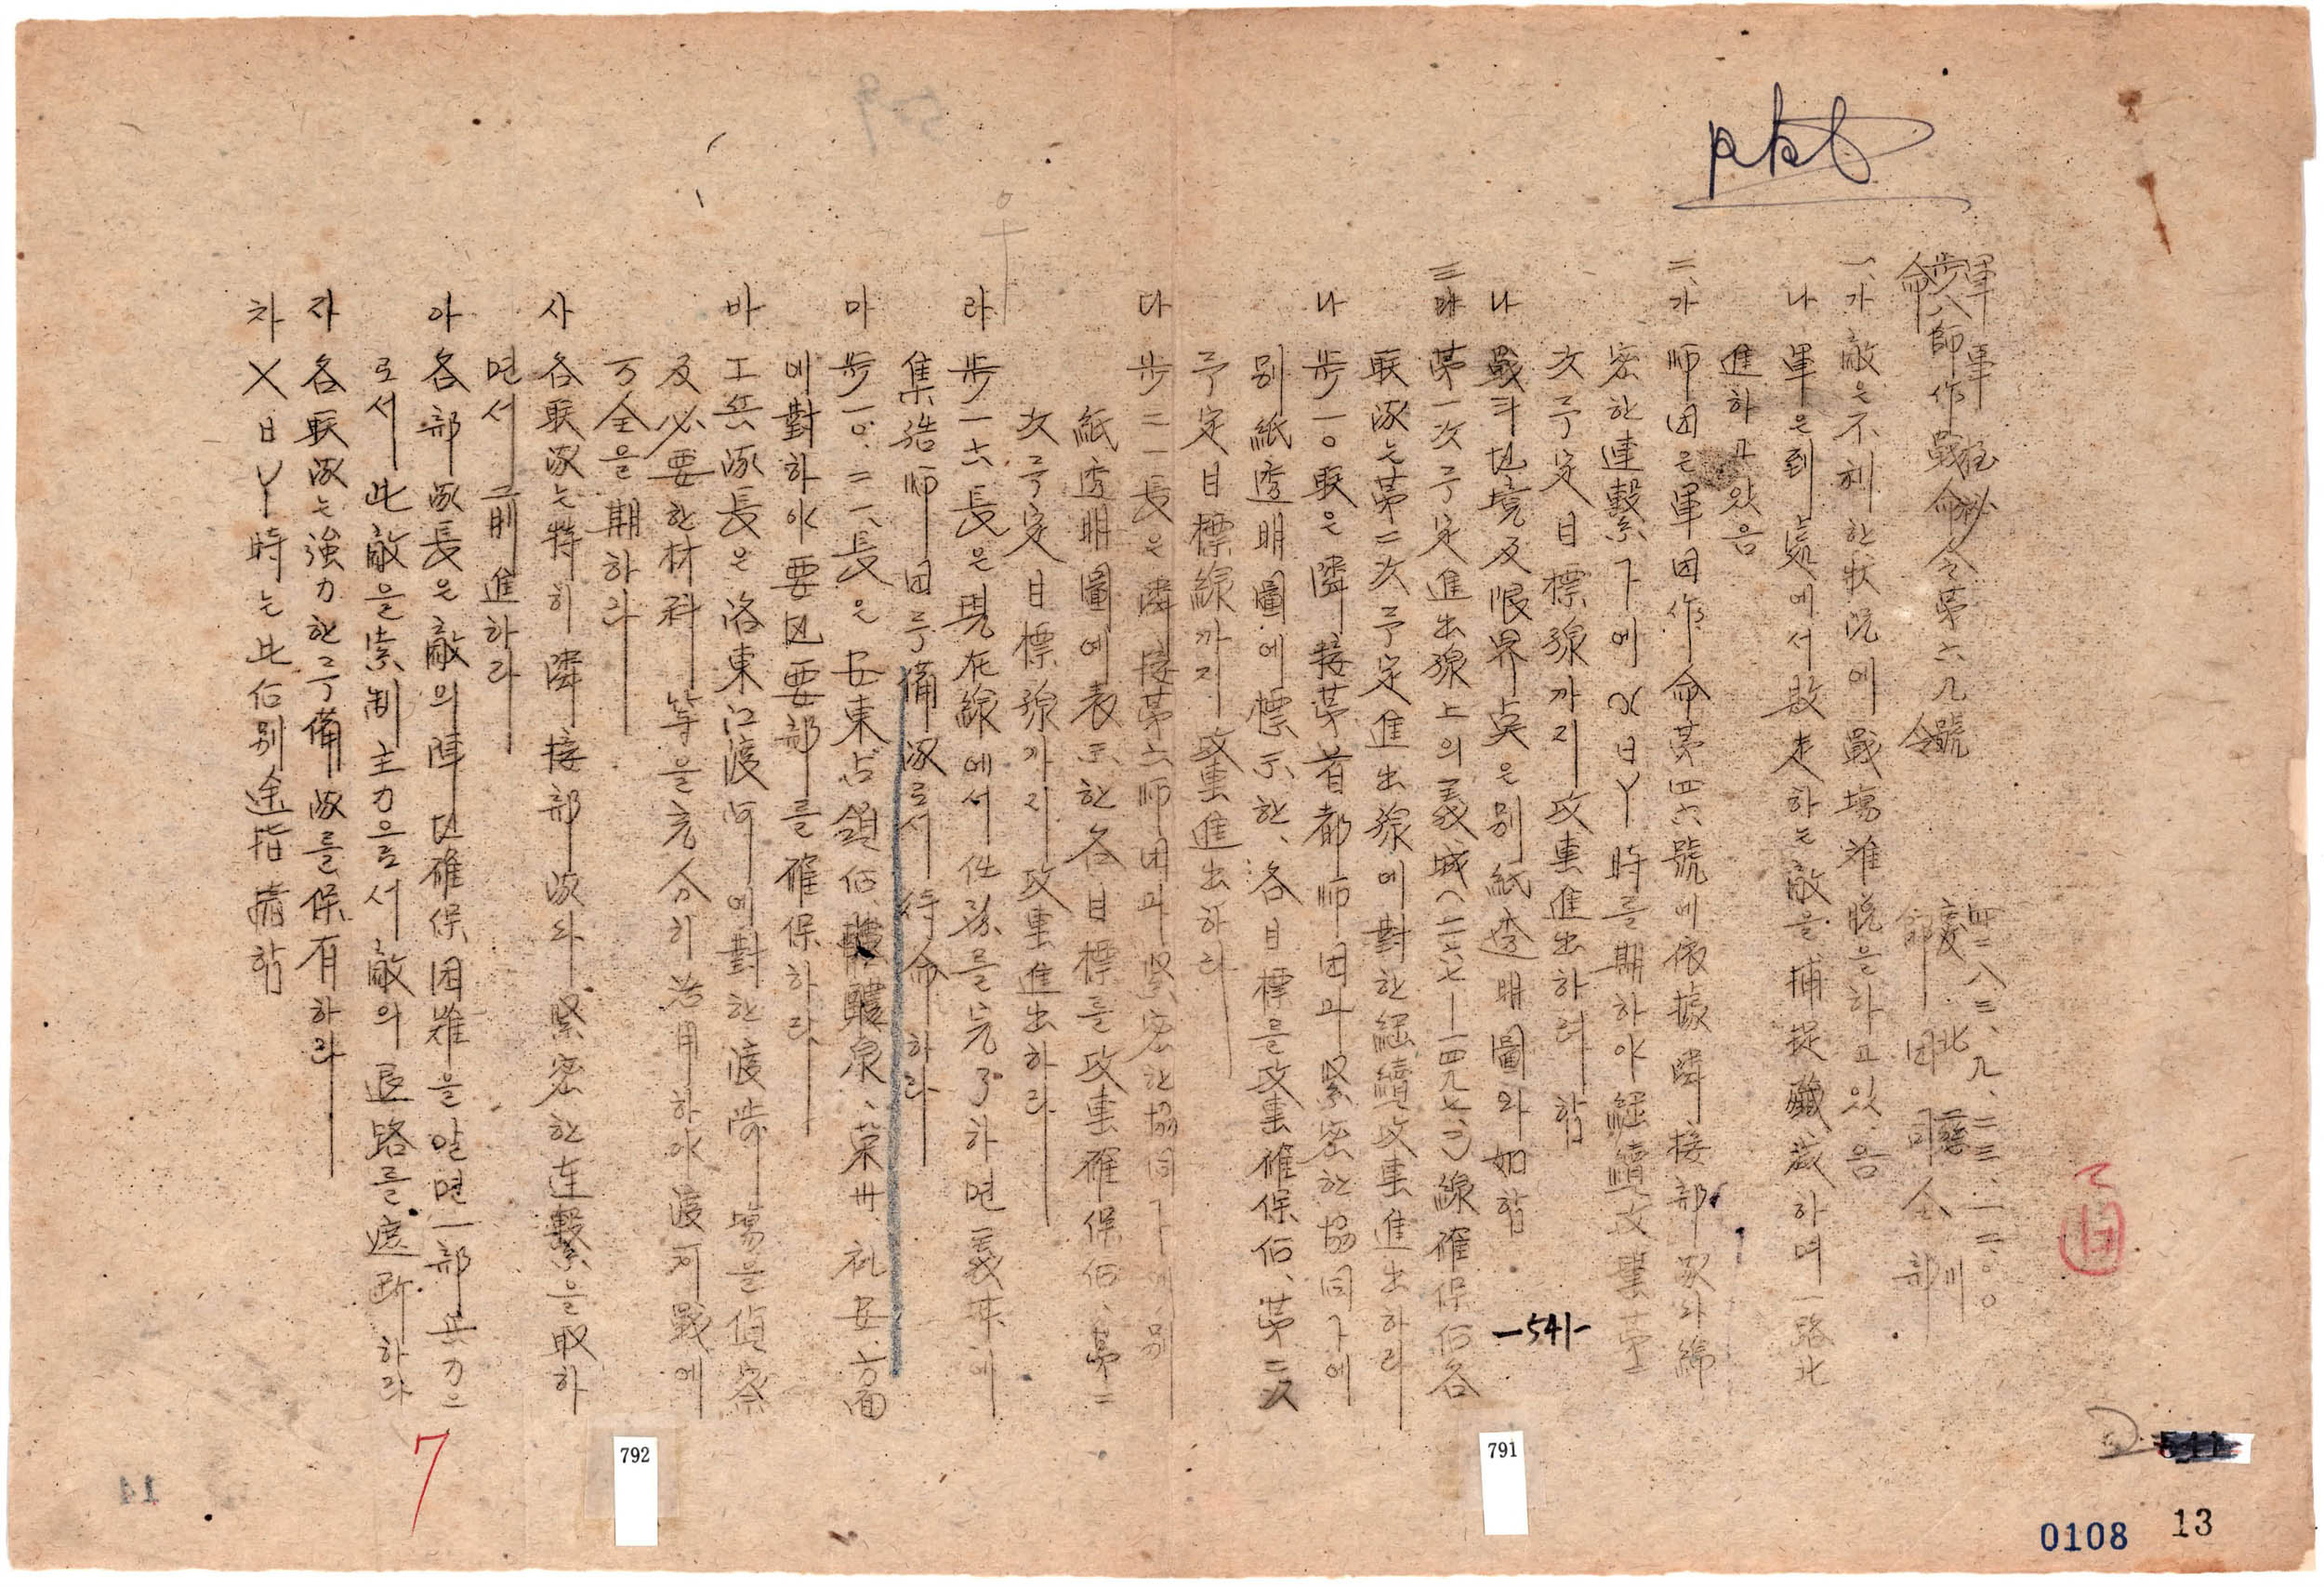 軍事極秘
步八師作戰命令第六九號
命令
四二八三、九、二三、一二:〇〇
慶北 義川
師團司令部
一、가 敵은不利한狀況에戰場離脫을하고있음
나 軍은到處에서敗走하는敵을捕捉殲滅하며一路北
進하고있음
二、가 師団은軍団作命第四六號에依據隣接部隊와綿
密한連繫下에X日Y時를期하야継續攻擊第二
次予定目標線까지攻擊進出하려함
나 戰斗地境及限界点은別紙透明圖와如함
三、가 第一次予定進出線上의義城線確保后各
聯隊는第二次予定進出線에對한継續攻擊進出하라
나 步一〇聯은隣接第首都師団과緊密한協同下에
別紙透明圖에標示한、各目標를攻擊確保后、第二次
予定目標線까지攻擊進出하라
다 步二一長은隣接第六師団과緊密한協同下에別
紙透明圖에表示한各目標를攻擊確保后、第二
次予定目標線까지攻擊進出하라
라 步一六長은現在線에서任務를完了하면義城에
集結師団予備隊로서待命하라
마 步一〇、二一、長은安東占領后、醴泉、榮州、礼安、方面
에對하야要地要部를確保하라
바 工兵隊長은洛東江渡河에對한渡涉場을偵察
及必要한材料等을充分히活用하야渡河戰에
万全을期하라
사 各聯隊는特히隣接部隊와緊密한连繫을取하
면서前進하라
아 各部隊長은敵의陣地確保困難을알면一部兵力으
로서此敵을牽制主力으로서敵의退路를遮斷하라
자 各聯隊는強力한予備隊를保有하라
차 X日Y時는此后別途指示함
-541-
791
792
7
14
0108
13